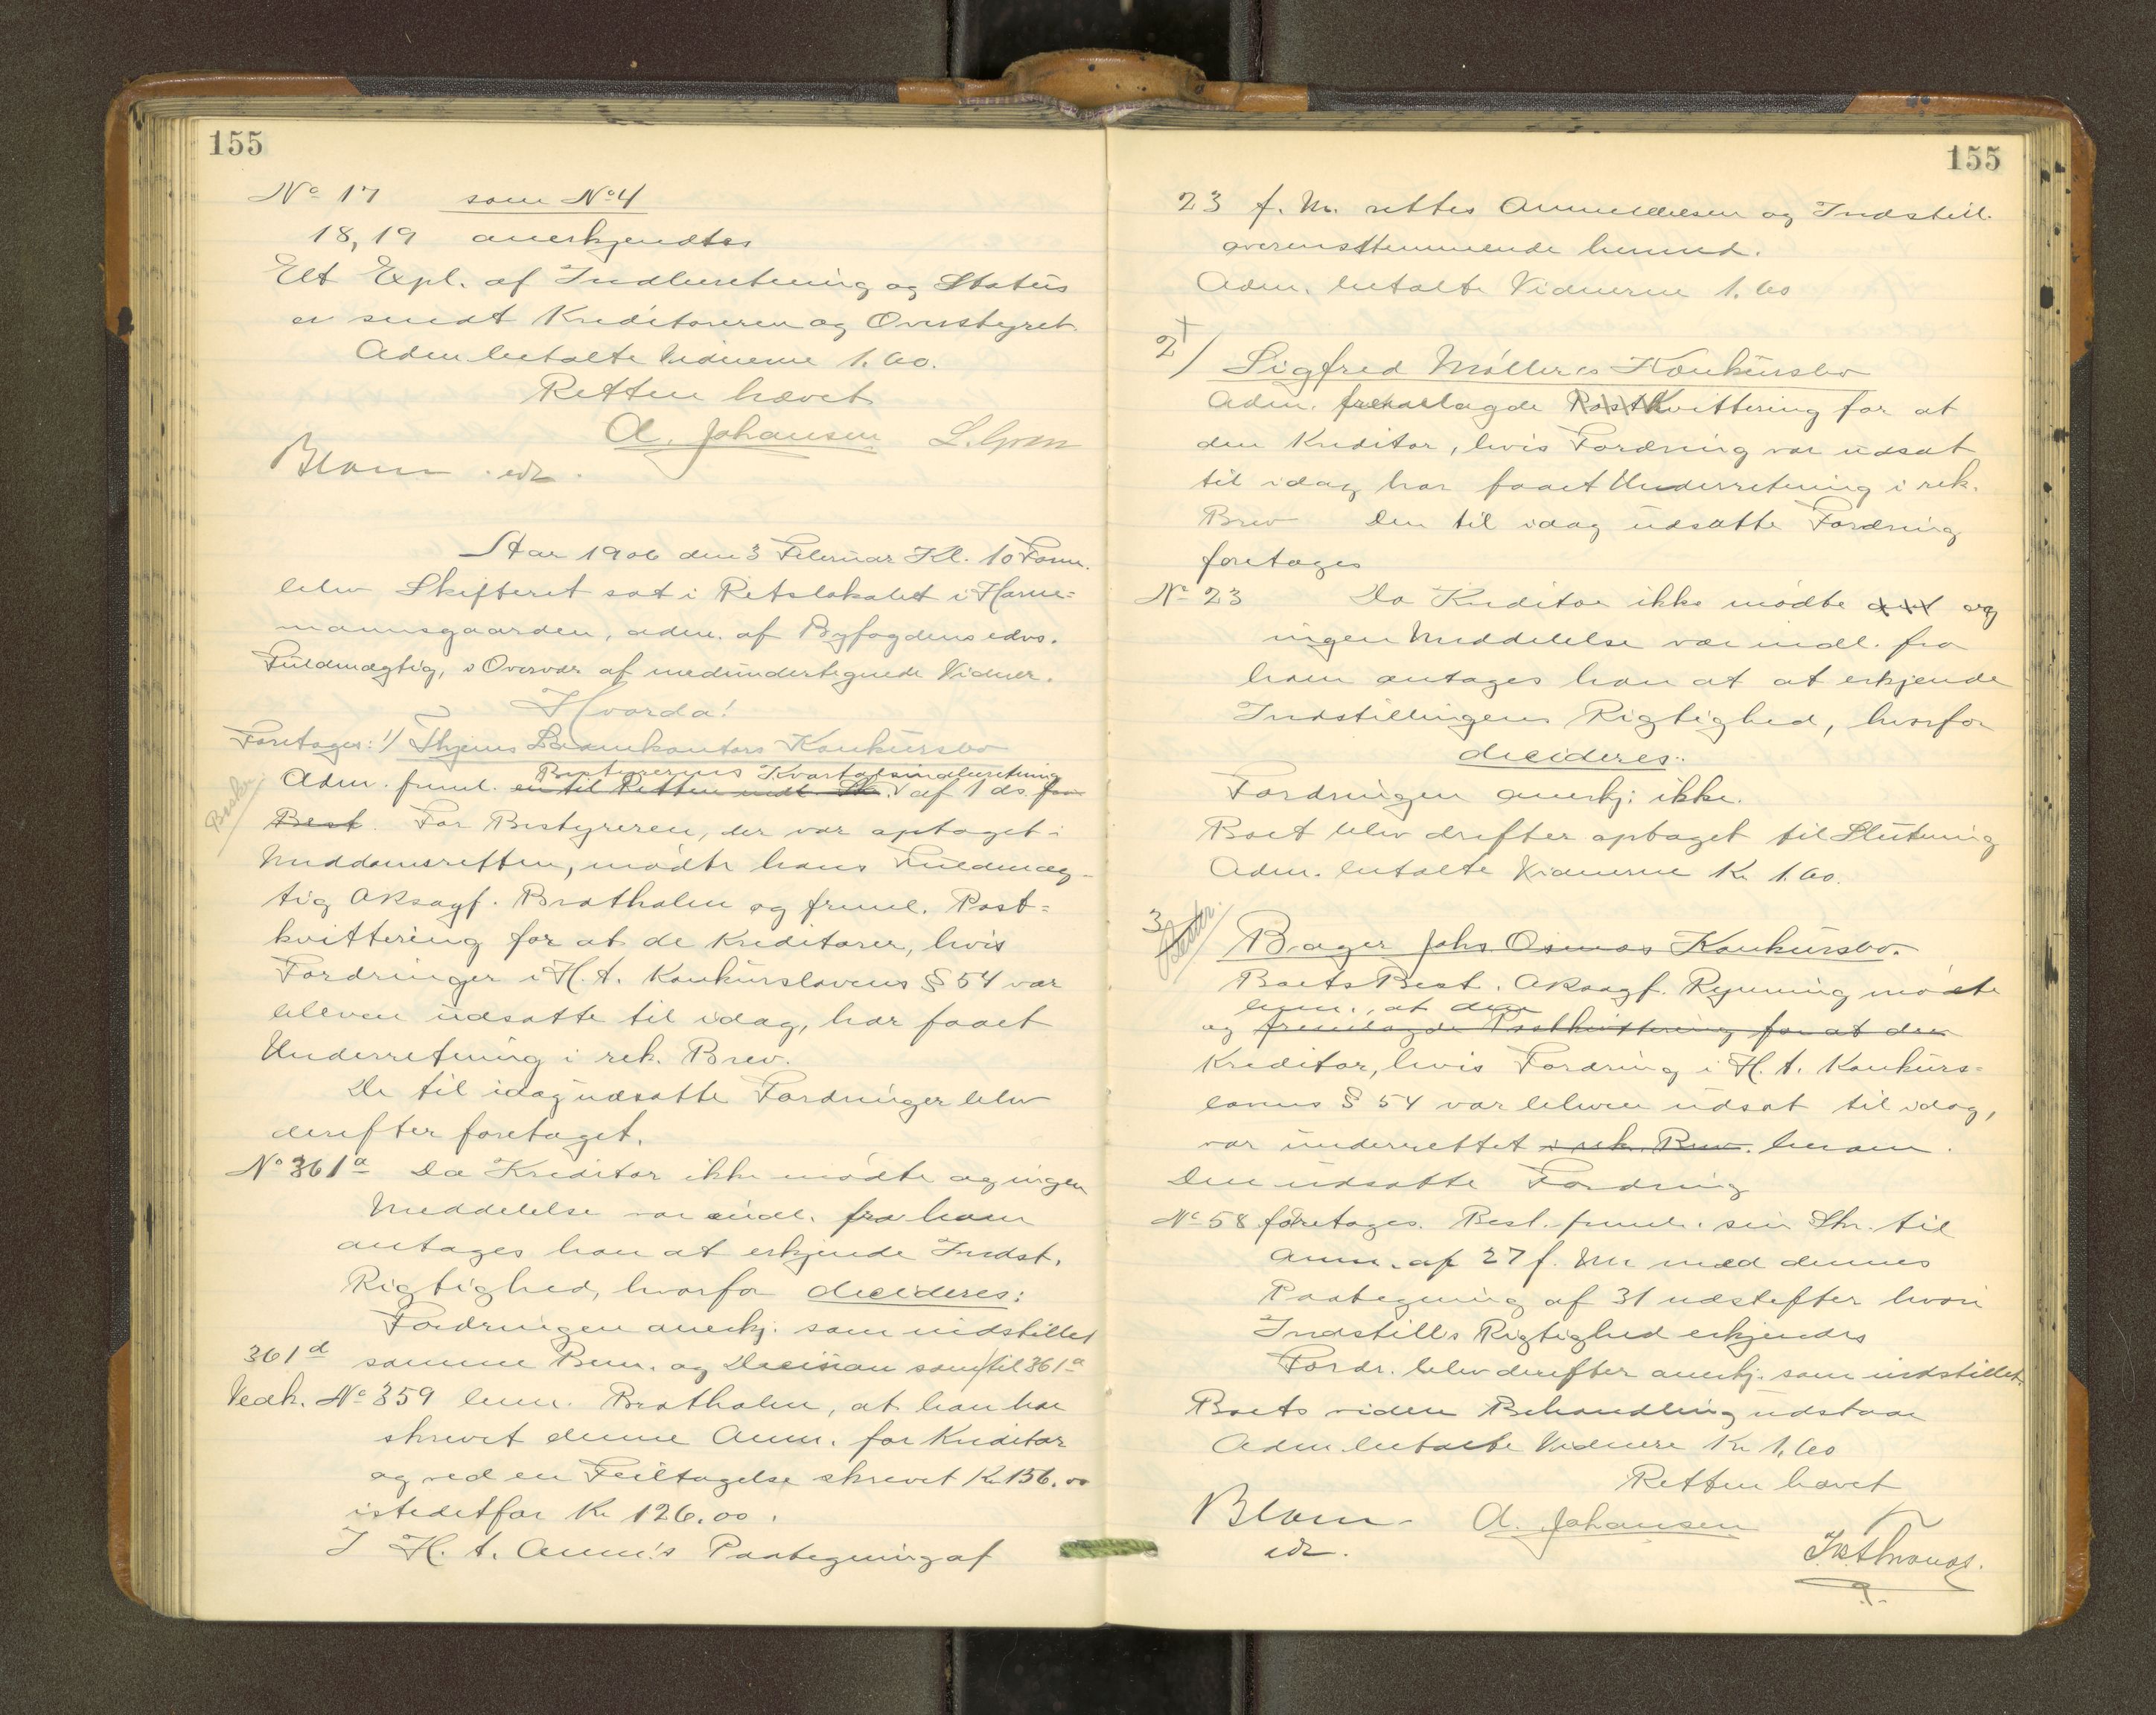 155
No 17 som No 4
18, 19 anerkjendtes
Elt Expl. af Indberetning og Status
er sendt Kreditorerne og Overstyret.
Adm betalte Vidnerne 1.60.
Retten hævet
A. Johansen
Blom edz.
Aar 1906 den 3 Februar Kl. 10 Form.
blev Skifteret sat i Retslokalet i Horne-
mannsgaarden, adm. af Byfogdens edvs.
Fuldmægtig, i Overvær af medundertegnede Vidner.
Hvorda!
Foretages: 1/ Thjems Laanekontors Konkursbo
Bestyrerens Kvartalsindberetning
Adm. freml. en til Retten indl Skr. af 1 ds. fra
Best. For Bestyreren, der var optaget i
Meddomsretten, mødte hans Fuldmæg-
tig OKsagf. Bratholm og freml. Post-
kvittering for at de Kreditorer, hvis
Fordringer i H. t. Konkurslovens § 54 var
bleven udsatte til idag, har faaet
Underretning i rek. Brev.
De til idag udsatte Fordringer blev
derefter foretaget.
No 361a Da Kreditor ikke mødte og ingen
Meddelelse var indl. fra ham
antages han at erkjende Indst.
Rigtighed, hvorfor decideres:
Fordringen anerkj. som indstillet
361d samme Bem. og Decision som til 361a
Vedk. No 359 bem. Bratholm, at han har
skrevet denne Anm. for Kreditor
og ved en Feiltagelse skrevet Kr 156.00
istedetfor Kr 126.00.
I H. t. Anm's Paategning af
155
23 f. M. rettes Anmeldelsen og Indstill.
overensstemmende hermed.
Adm. betalte Vidnerne 1.60
2/ Sigfred Møllers Konkursbo
Adm. fremlagde Postkvittering for at
den Kreditor, hvis Fordring var udsat
til idag har faaet Underretning i rek.
Brev Den til idag udsatte Fordring
foretages
No 23 Da Kreditor ikke mødte og
ingen Meddelelse var indl. fra
ham antages han at at erkjende
Indstillingens Rigtighed, hvorfor
decideres:
Fordringen anerkj. ikke.
Boet blev drefter optaget til Slutning
Adm. betalte Vidnerne Kr 1.60.
3/ Bager Johs Osmos Konkursbo.
Boets Best. OKsagf. Rynning mødte
bem., at den
og fremlagde Postkvittering for at den
Kreditor, hvis Fordring i H. t. Konkurs-
lovens § 54 var bleven udsat til idag,
var underrettet i rek. Brev. herom.
Den udsatte Fordring
No 58 foretages. Best. freml. sin Skr. til
Anm. af 27 f. M. med dennes
Paategning af 31 udstefter hvori
Indstill's Rigtighed erkjendes
Fordr. blev derefter anerkj. som indstillet.
Boets videre Behandling udstaar
Adm betalte Vidnere Kr 1,60
Retten hævet
Blom A. Johansen
edz.